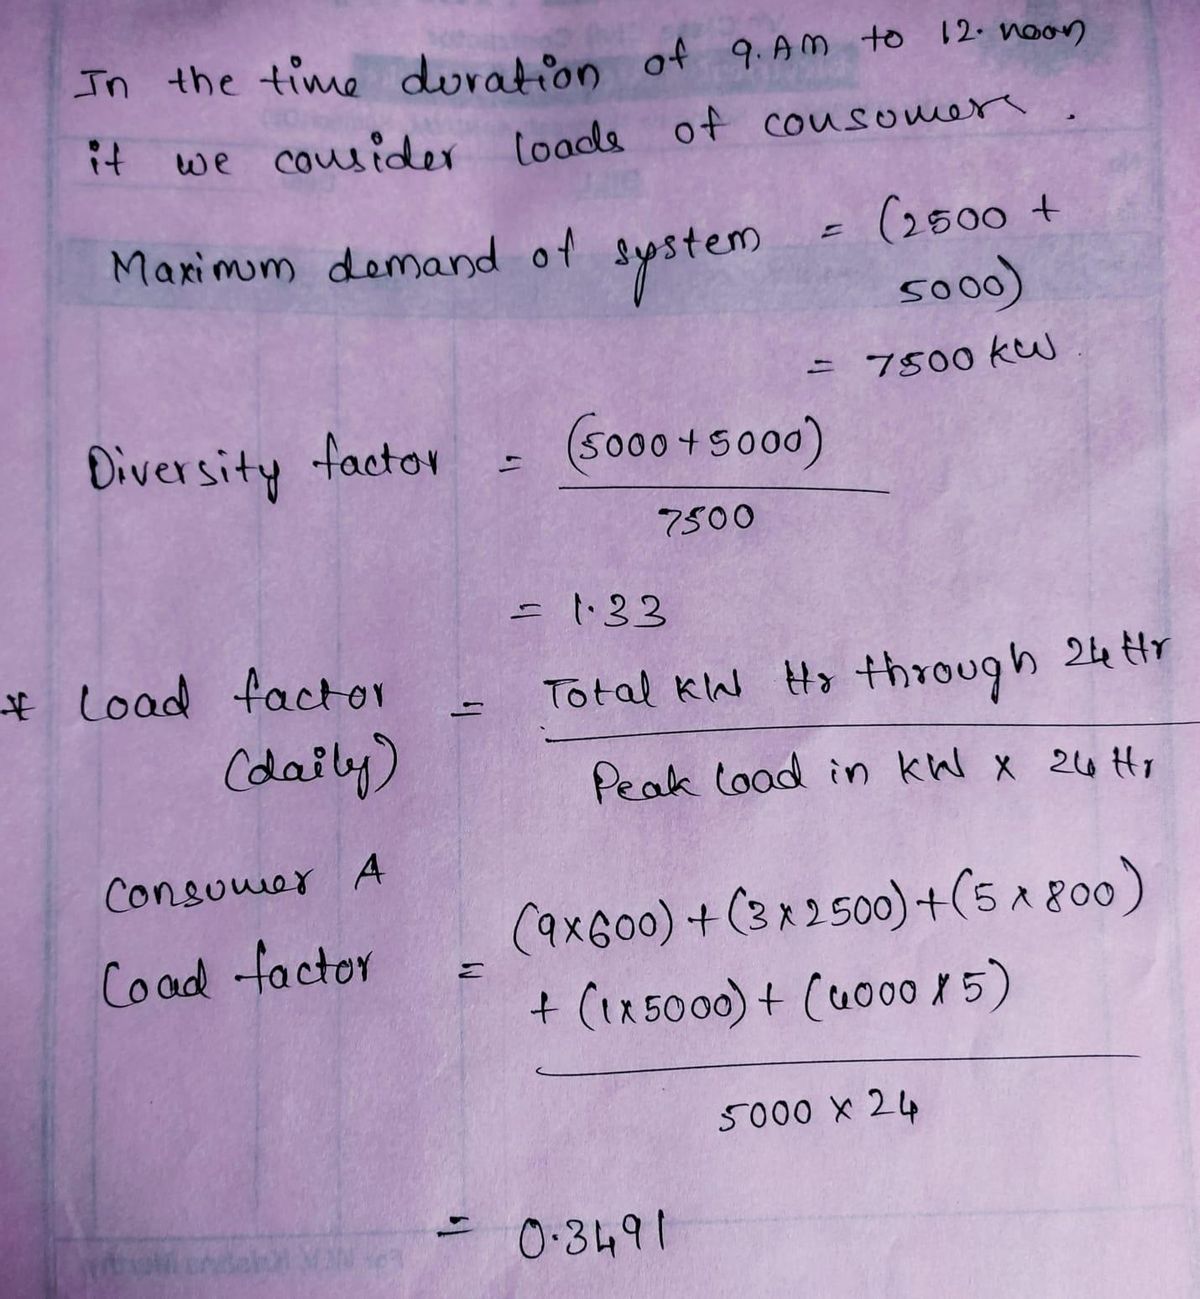 In the time duration of 9.AM to 12. noon
if we consider loads of consumers.
Maximum demand of system = (2500 +
5000)
= 7500 kW.
Diversity factor = (5000+5000)
7500
= 1.33
* Load factor = Total KW Hr through 24 Hr
(daily) Peak load in kW x 24 Hr
Consumer A
Load factor = (9x600) + (3x2500)+(5x800)
+ (1x5000)+ (4000x5)
5000 x 24
= 0.3491